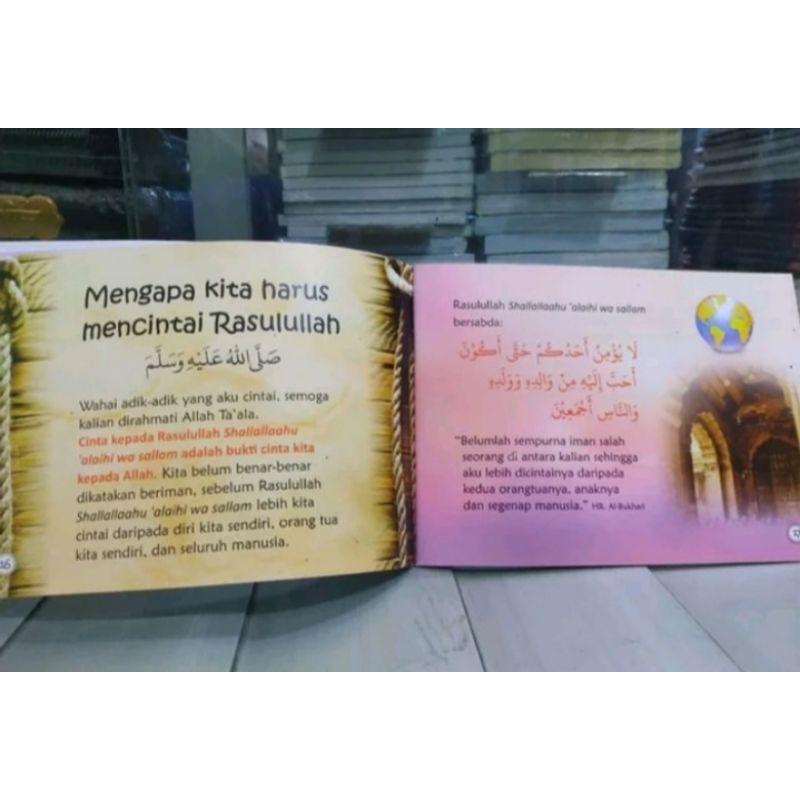 Mengapa kita harus
mencintai Rasulullah
صَلَّى اللهُ عَلَيْهِ وَسَلَّمَ
Wahai adik-adik yang aku cintai, semoga
kalian dirahmati Allah Ta'ala.
Cinta kepada Rasulullah Shallallaahu
'alaihi wa sallam adalah bukti cinta kita
kepada Allah. Kita belum benar-benar
dikatakan beriman, sebelum Rasulullah
Shallallaahu 'alaihi wa sallam lebih kita
cintai daripada diri kita sendiri, orang tua
kita sendiri, dan seluruh manusia.
Rasulullah Shallallaahu 'alaihi wa sallam
bersabda:
لَا يُؤْمِنُ أَحَدُكُمْ حَتَّى أَكُوْنَ
أَحَبَّ إِلَيْهِ مِنْ وَالِدِهِ وَوَلَدِهِ
وَالنَّاسِ أَجْمَعِيْنَ
"Belumlah sempurna iman salah
seorang di antara kalian sehingga
aku lebih dicintainya daripada
kedua orangtuanya, anaknya
dan segenap manusia." HR. Al-Bukhari